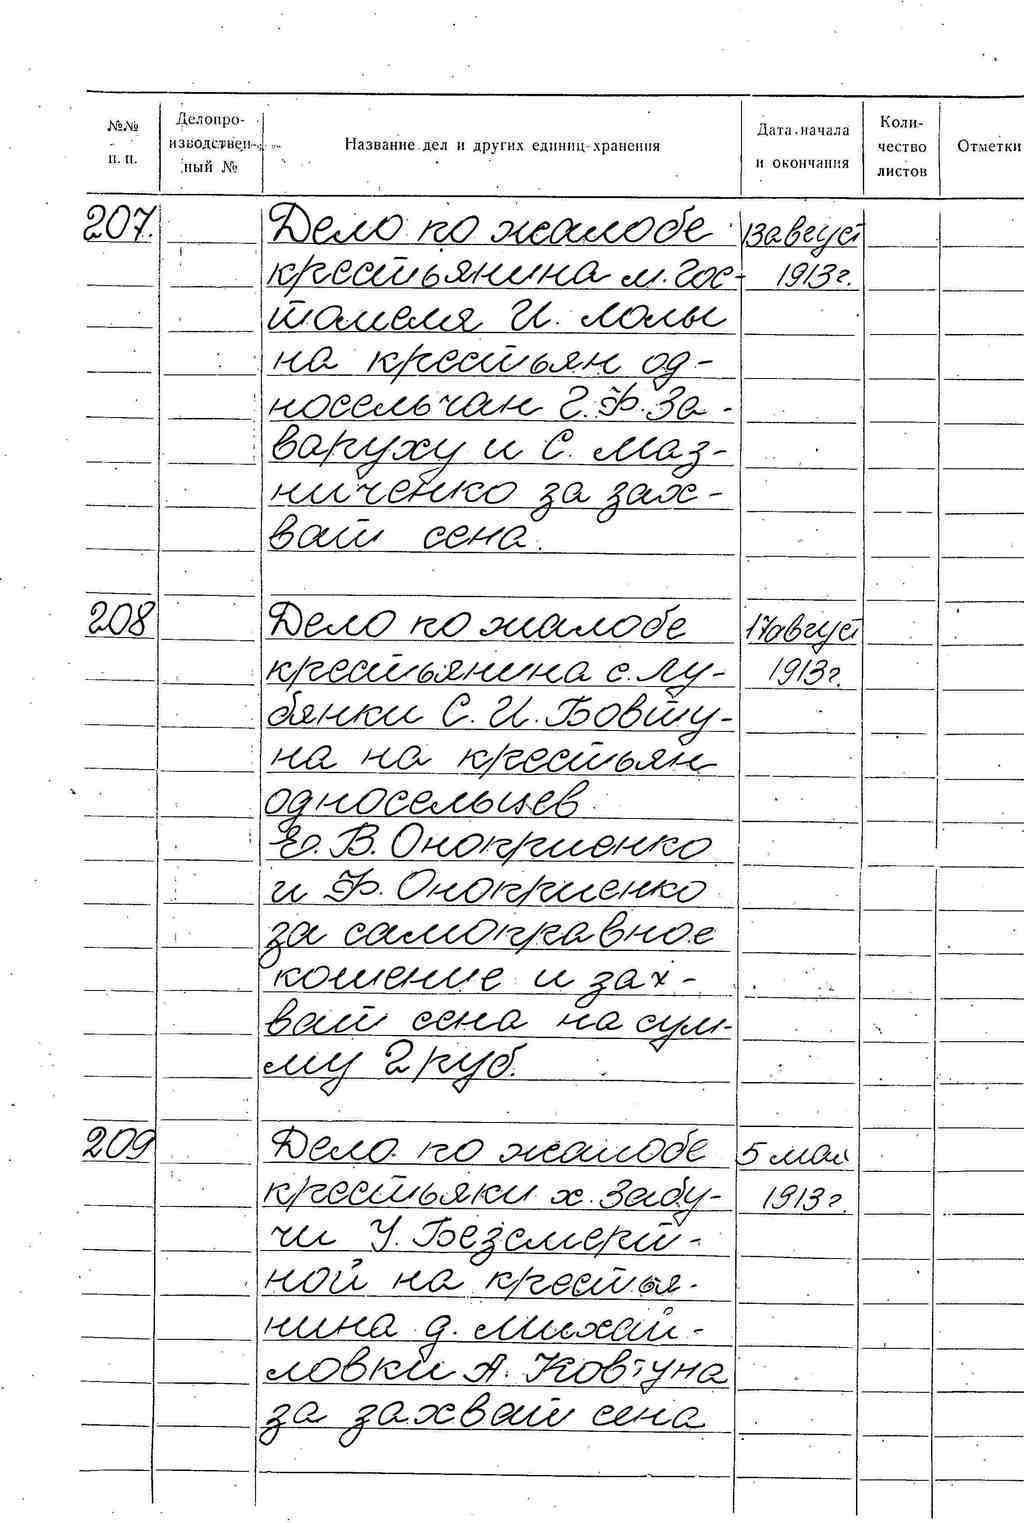 №№ п. п. Делопроизводственный № Название дел и других единиц хранения Дата начала и окончания Количество листов Отметки
207. Дело по жалобе 13 август
крестьянина м. Гос- 1913 г.
томеля И. Лолы
на крестьян од-
носельчан Г. Ф. За-
варуху и С. Маз-
ниченко за зах-
ват сена.
208 Дело по жалобе 17 август
крестьянина с. Лу- 1913 г.
бянки С. И. Бовту-
на на крестьян
односельцев
Е. В. Оноприенко
и Ф. Оноприенко
за самоправное
кошение и зах-
ват сена на сум-
му 2 руб.
209 Дело по жалобе 5 мая
крестьяки х. Забу- 1913 г.
чи У. Безсмерт-
ной на крестья-
нина д. Михай-
ловки А. Ковтуна
за захват сена